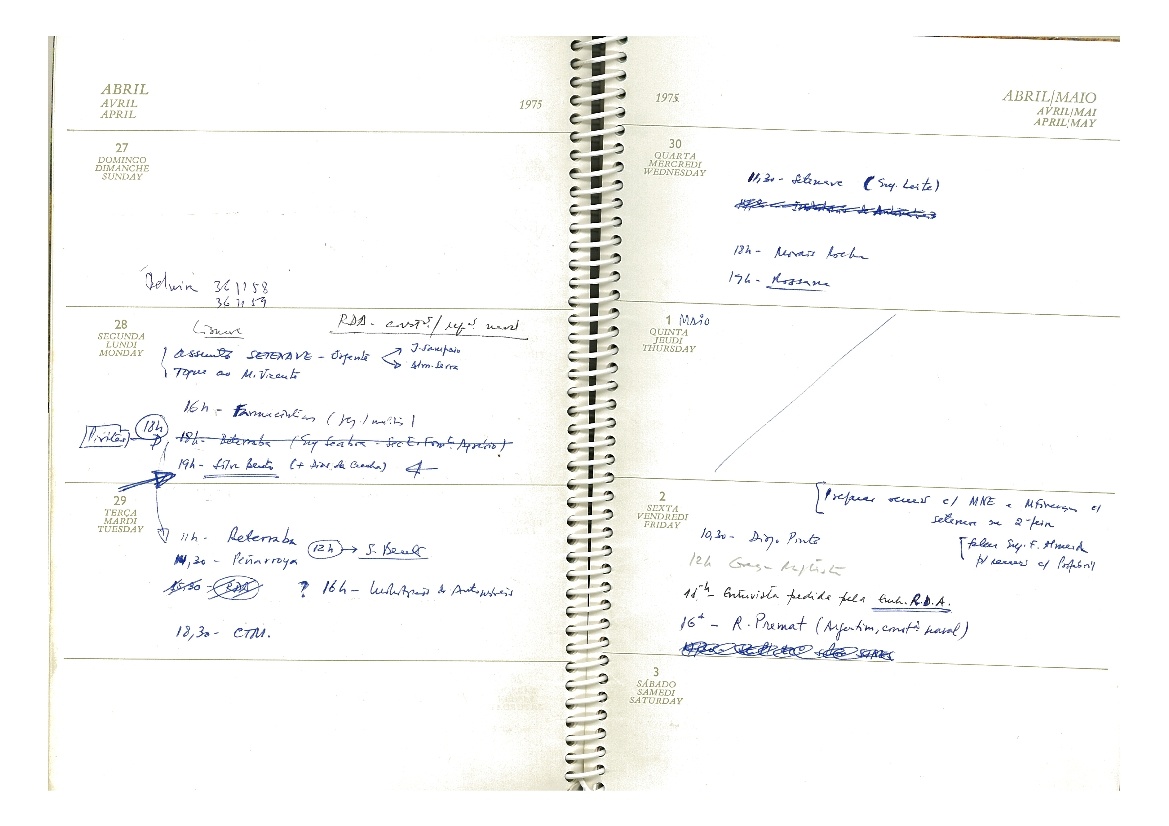 ABRIL
AVRIL
APRIL
1975
27
DOMINCO
DIMANCHE
SUNDAY
361158
361159
28
SEGUNDA
LUNDI
MONDAY
Lisnave
RDA - constr./rep. naval
assunto SETENAVE - Urgente
J. Sampaio
Alm. Serra
Toque ao M. Vicente
16h -
18h
18h - Beterraba (Eng.
19h - Silva Bento (+ Dias da Cunha)
29
TERÇA
MARDI
TUESDAY
11h - Beterraba
12h → S. Bento
11,30 - Peñarroya
15,30 - RDA
? 16h - Industriais de Automóveis
18,30 - CTM.
1975
ABRIL/MAIO
AVRIL/MAI
APRIL/MAY
30
QUARTA
MERCREDI
WEDNESDAY
11,30 - Setenave (Eng. Leite)
18h - Morais Rocha
19h - Rossana
1 MAIO
QUINTA
JEUDI
THURSDAY
2
SEXTA
VENDREDI
FRIDAY
Preparar reunião c/ MNE e MFinanças c/
Setenave na 2ª feira
falar Eng. F. Almeida
p/ reunião c/
10,30 - Diogo Pinto
12h
15h - Entrevista pedida pela Emb. R.D.A.
16h - R. Premat (Argentina, constr. naval)
3
SÁBADO
SAMEDI
SATURDAY